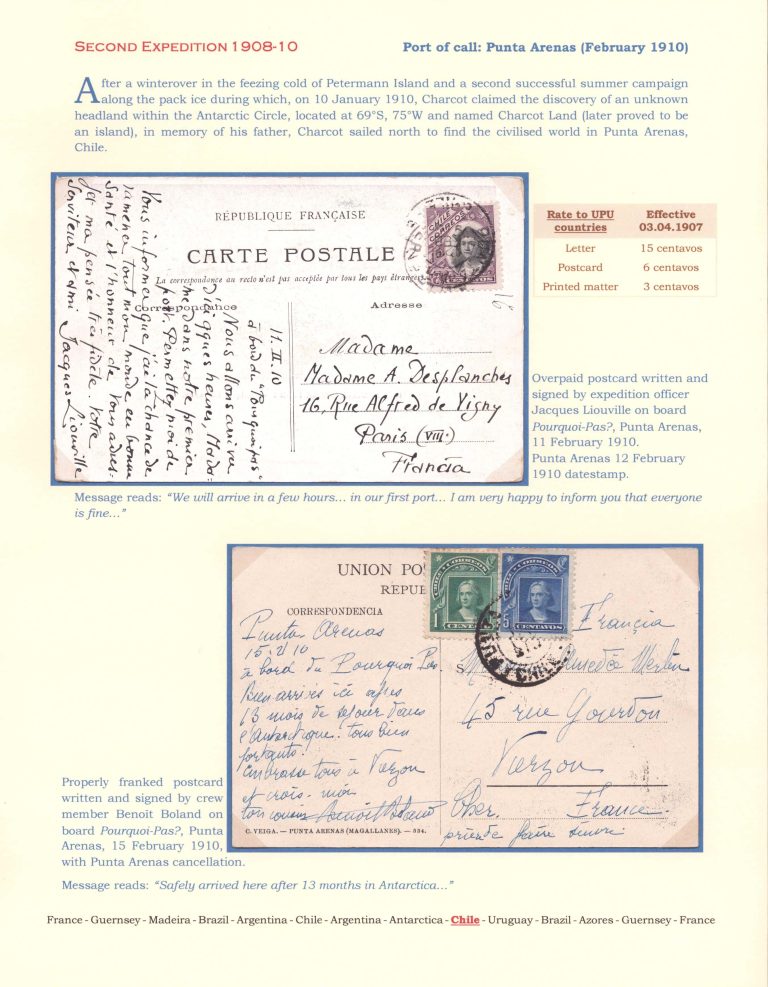 SECOND EXPEDITION 1908-10
Port of call: Punta Arenas (February 1910)
After a winterover in the feezing cold of Petermann Island and a second successful summer campaign
along the pack ice during which, on 10 January 1910, Charcot claimed the discovery of an unknown
headland within the Antarctic Circle, located at 69°S, 75°W and named Charcot Land (later proved to be
an island), in memory of his father, Charcot sailed north to find the civilised world in Punta Arenas,
Chile.
RÉPUBLIQUE FRANÇAISE
CARTE POSTALE
La correspondance au recto n'est pas acceptée par tous les pays étrangers
Correspondance
Adresse
11.II.10
à bord du "Pourquoi-pas"
Nous allons arriver
d'ici qques heures, Mada-
me dans notre premier
port. Permettez moi de
Vous informer que j'ai la chance de
ramener tout mon monde en bonne
santé et l'honneur de vous adres-
ser ma pensée très fidèle. Votre
Serviteur et ami Jacques Liouville
CHILE
CORREOS
Madame
Madame A. Desplanches
16, Rue Alfred de Vigny
Paris (VIII.)
Francia
Rate to UPU countries Effective 03.04.1907
Letter 15 centavos
Postcard 6 centavos
Printed matter 3 centavos
Overpaid postcard written and
signed by expedition officer
Jacques Liouville on board
Pourquoi-Pas?, Punta Arenas,
11 February 1910.
Punta Arenas 12 February
1910 datestamp.
Message reads: "We will arrive in a few hours... in our first port... I am very happy to inform you that everyone
is fine..."
UNION PO
REPUB
CORRESPONDENCIA
Punta Arenas
15.2.10
à bord du Pourquoi Pas.
Bien arrivés ici après
13 mois de séjour dans
l'Antarctique. tous bien
portants.
embrasse tous à Vierzon
et crois-moi
ton cousin Benoit Boland
C. VEIGA. — PUNTA ARENAS (MAGALLANES). — 534.
1 CENTAVO
5 CENTAVOS
Francia
Amedée Merlin
45 rue Gourdon
Vierzon
Cher. France
prière de faire suivre
Properly franked postcard
written and signed by crew
member Benoit Boland on
board Pourquoi-Pas?, Punta
Arenas, 15 February 1910,
with Punta Arenas cancellation.
Message reads: "Safely arrived here after 13 months in Antarctica..."
France - Guernsey - Madeira - Brazil - Argentina - Chile - Argentina - Antarctica - Chile - Uruguay - Brazil - Azores - Guernsey - France